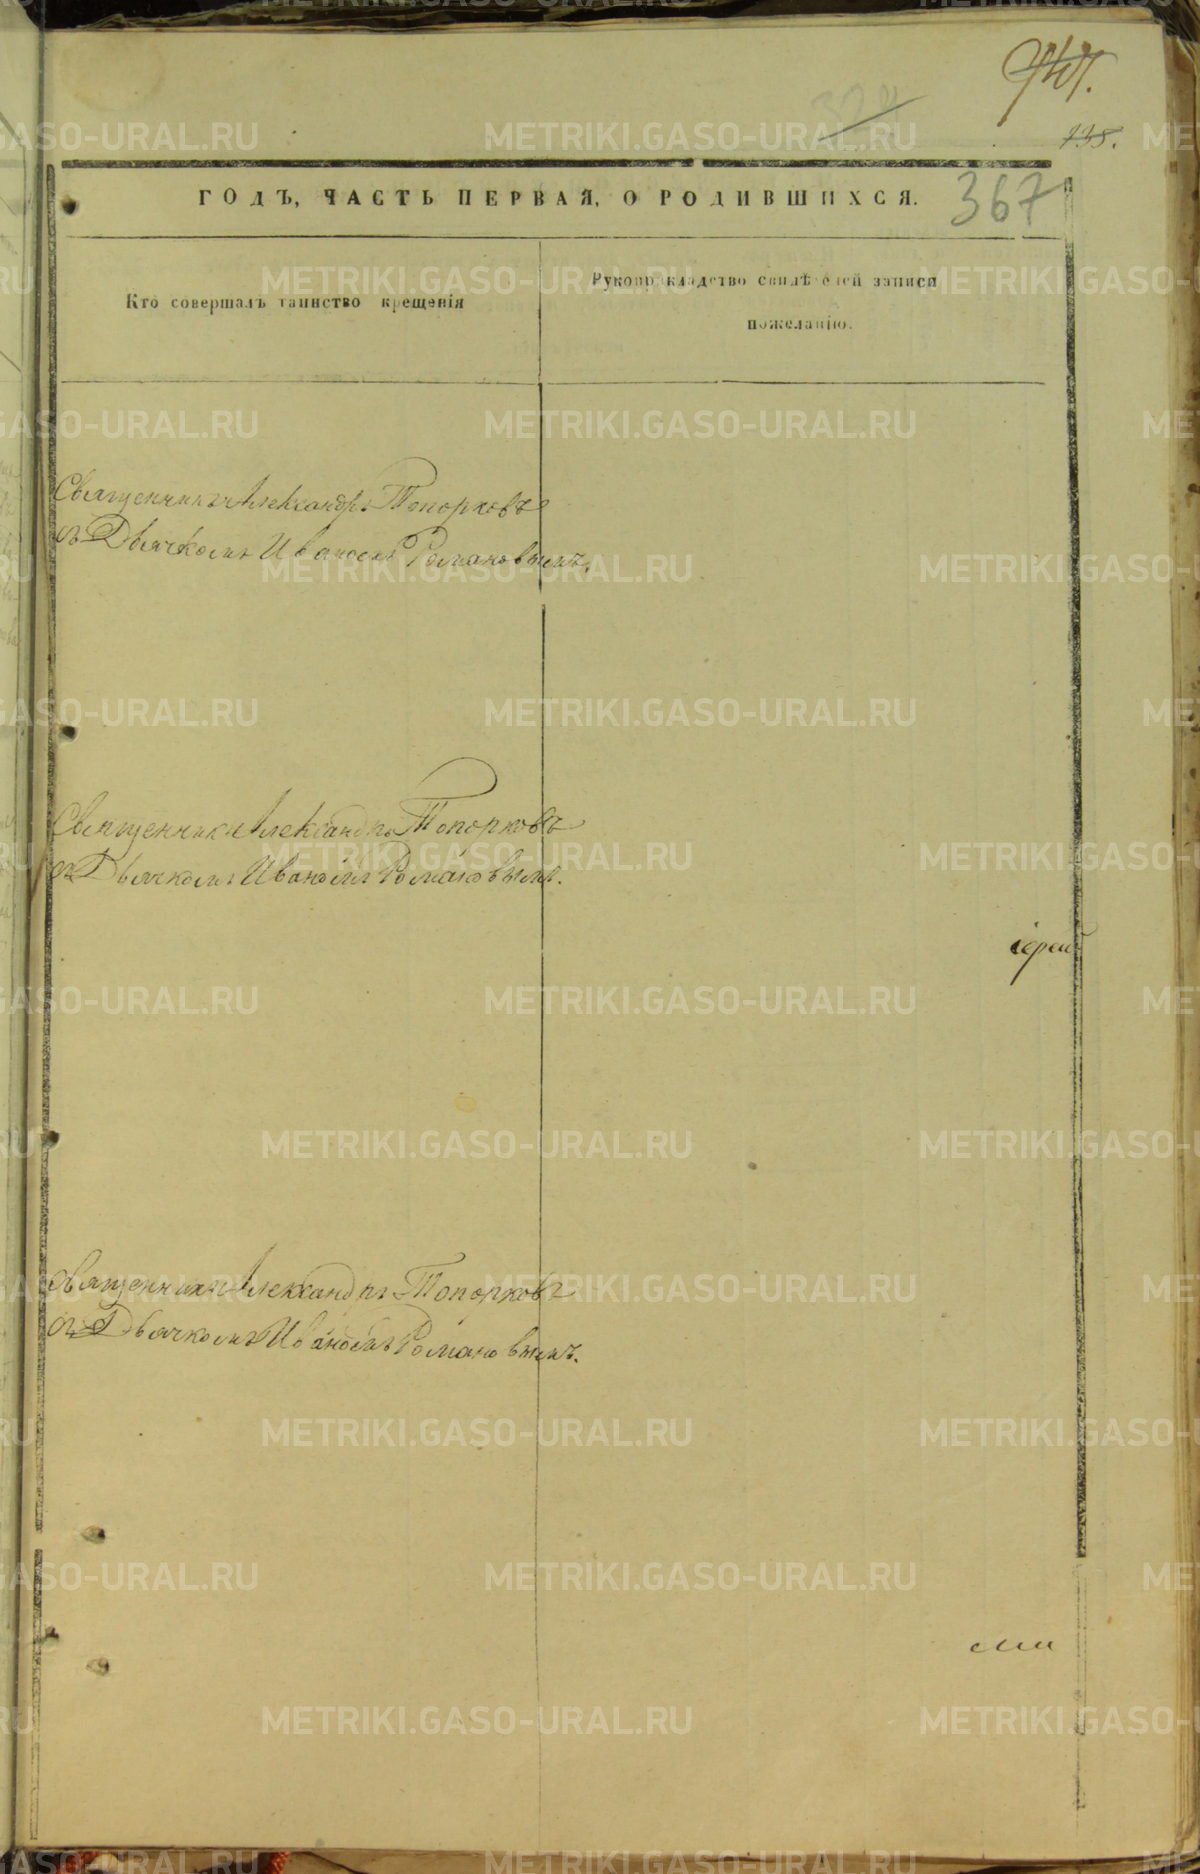 138.
367
ГОДЪ, ЧАСТЬ ПЕРВАЯ, О РОДИВШИХСЯ.
Кто совершалъ таинство крещенія
Рукоприкладство свидѣтелей записи
пожеланію.
Священникъ Александръ Топорковъ
съ Дьячкомъ Иваномъ Романовымъ.
Священникъ Александръ Топорковъ
съ Дьячкомъ Иваномъ Романовымъ.
іерей
Священникъ Александръ Топорковъ
съ Дьячкомъ Иваномъ Романовымъ.
METRIKI.GASO-URAL.RU